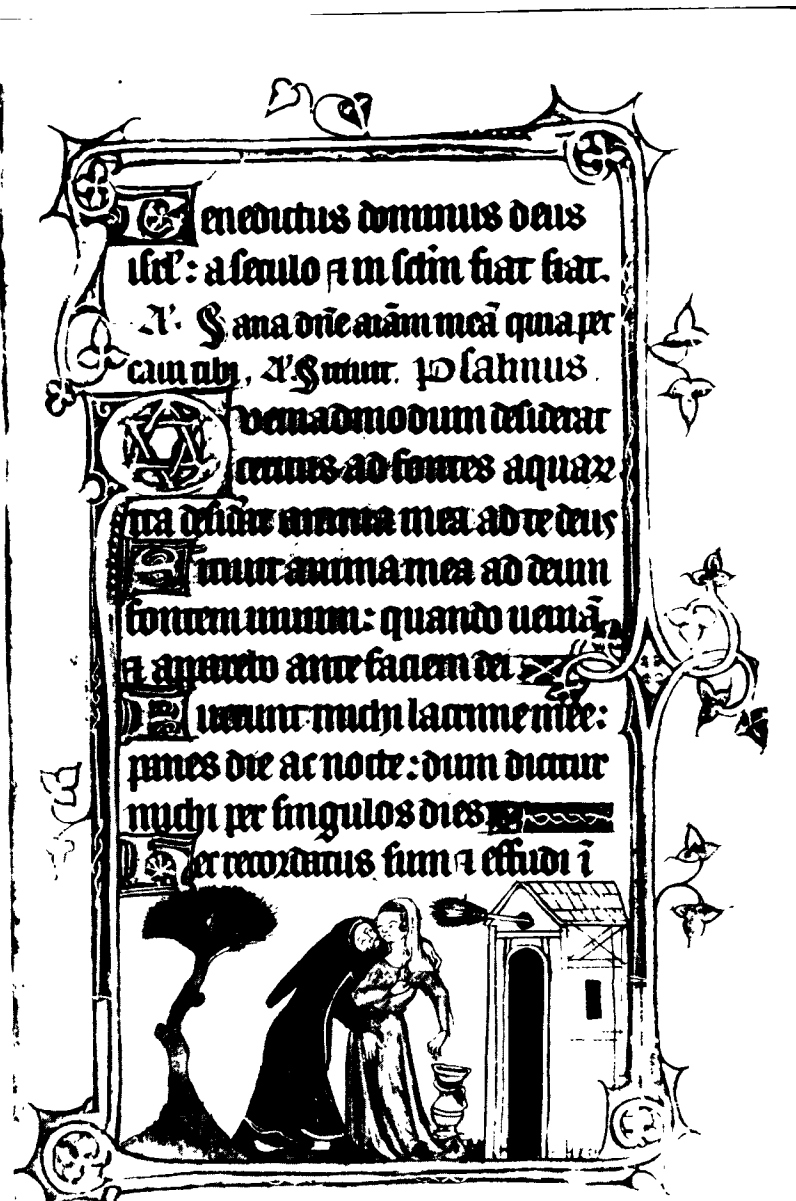 Benedictus dominus deus
isrl': a seculo ⁊ in sclm fiat fiat.
A'. Sana dñe aīam meā quia pec
caui tibi, A' Sitiuit. Psalmus.
Quemadmodum desiderat
ceruus ad fontes aquaꝝ
ita desidat anima mea ad te deus
Sitiuit anima mea ad deum
fontem uiuum: quando ueniā
⁊ apparebo ante faciem dei
Fuerunt michi lacrime mee:
panes die ac nocte: dum dicitur
michi per singulos dies
Hec recordatus sum ⁊ effudi ī